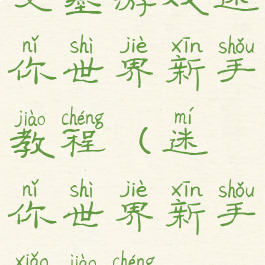 文墨游戏迷
nǐ shì jiè xīn shǒu
你世界新手
jiào chéng mí
教程（迷
nǐ shì jiè xīn shǒu
你世界新手
xiǎo jiào chéng